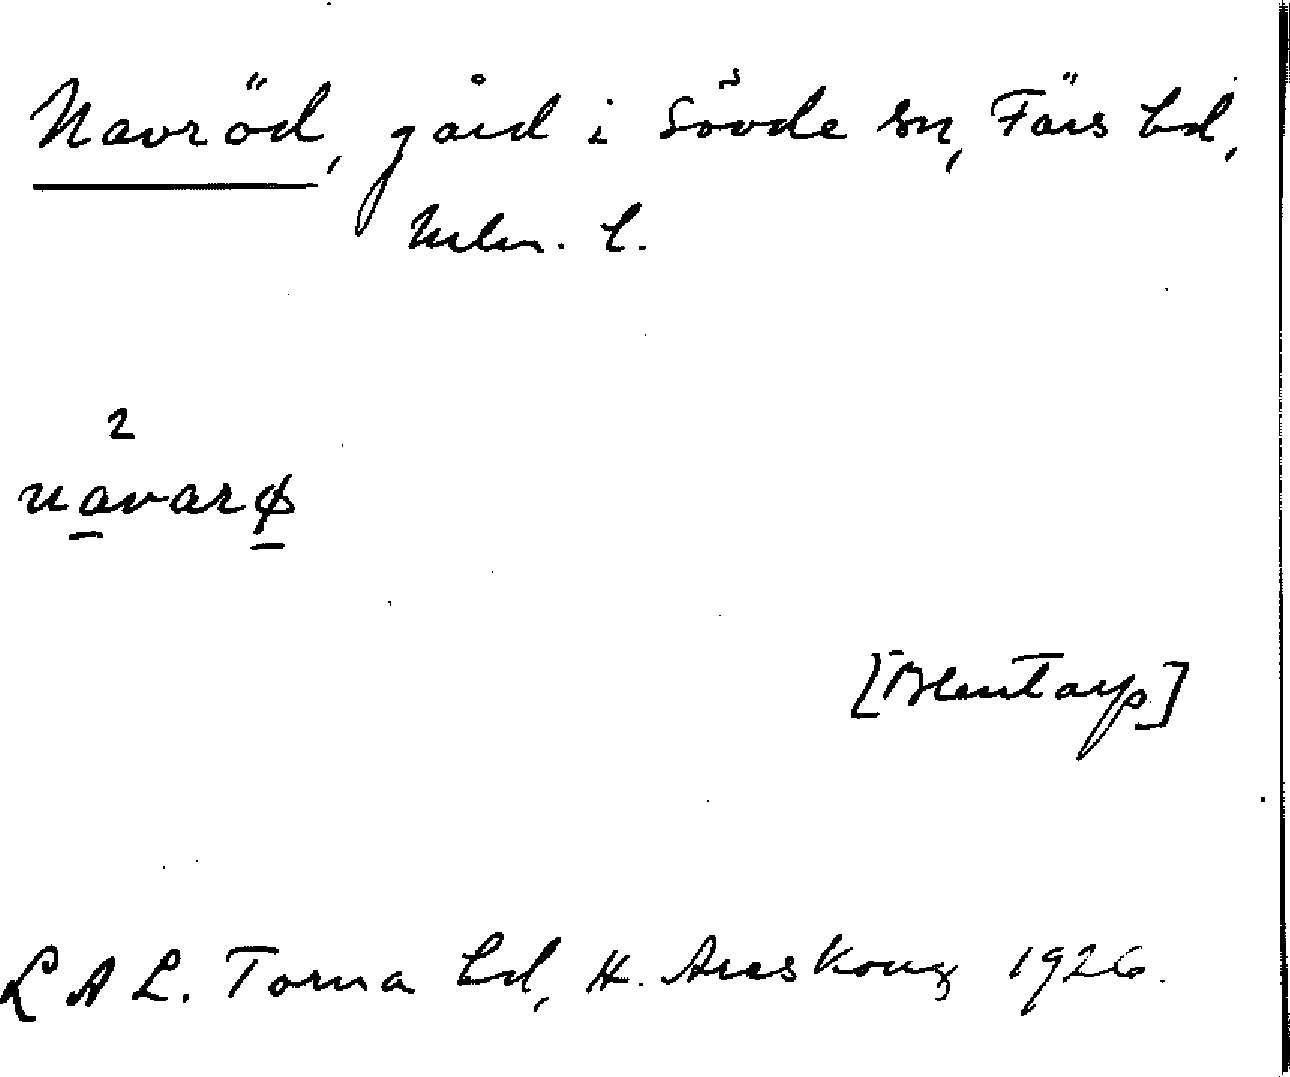 Navröd, gård i Sövde sn, Färs hd,
Mlm. l.
2
navarø
[Blentarp]
LAL. Torna hd, H. Areskoug 1926.